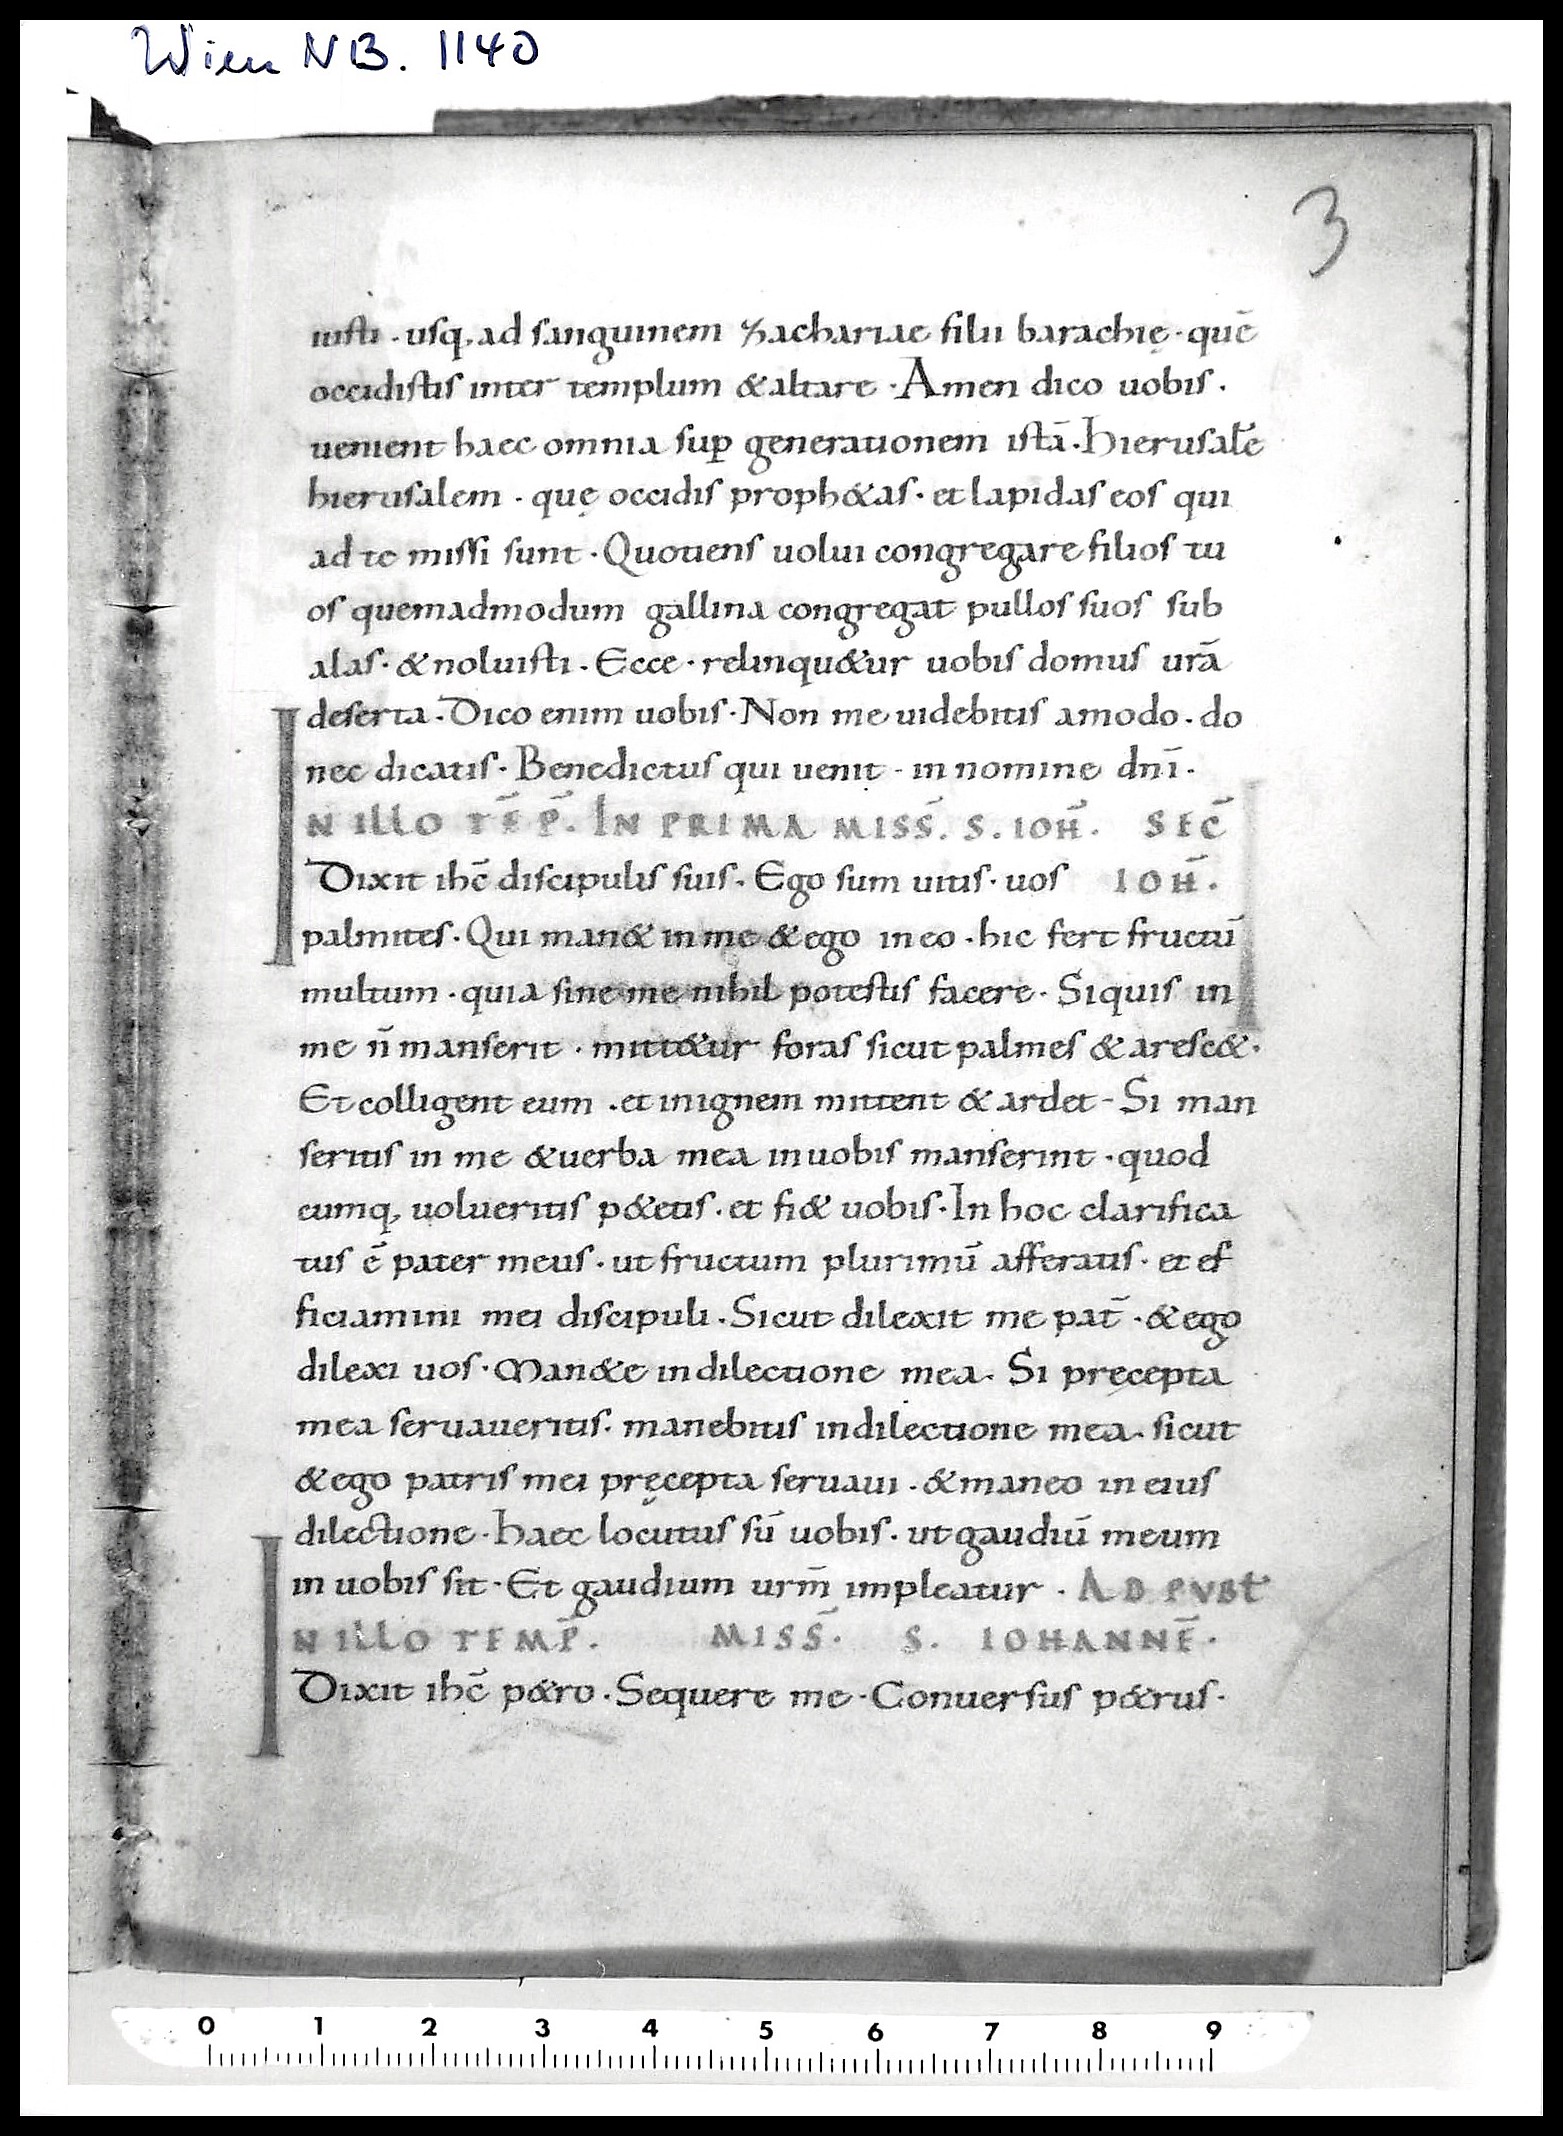 Wien NB. 1140
3
iusti · usq, ad sanguinem zachariae filii barachię · quē
occidistis inter templum & altare · Amen dico uobis ·
uenient haec omnia sup̱ generationem istā · Hierusalē
hierusalem · quę occidis proph&as · et lapidas eos qui
ad te missi sunt · Quotiens uolui congregare filios tu
os quemadmodum gallina congregat pullos suos sub
alas · & noluisti · Ecce · relinqu&ur uobis domus urā
deserta · Dico enim uobis · Non me uidebitis amodo · do
nec dicatis · Benedictus qui uenit · in nomine dnī ·
IN ILLO TĒP̄. IN PRIMA MISS̄. S. IOH̄. SEC̄
Dixit ihc̄ discipulis suis · Ego sum uitis · uos IOH̄.
palmites · Qui man& in me & ego in eo · hic fert fructū
multum · quia sine me nihil potestis facere · Siquis in
me n̄ manserit · mitt&ur foras sicut palmes & aresc& ·
Et colligent eum · et in ignem mittent & ardet · Si man
seritis in me & uerba mea in uobis manserint · quod
cumq, uolueritis p&etis · et fi& uobis · In hoc clarifica
tus ē pater meus · ut fructum plurimū afferatis · et ef
ficiamini mei discipuli · Sicut dilexit me pat̄ · & ego
dilexi uos · Man&e in dilectione mea · Si pręcepta
mea seruaueritis · manebitis in dilectione mea · sicut
& ego patris mei pręcepta seruaui · & maneo in eius
dilectione · Haec locutus sū uobis · ut gaudiū meum
in uobis sit · Et gaudium urm̄ impleatur · AD PVBL̄
IN ILLO TEMP̄. MISS̄. S. IOHANNĒ.
Dixit ihc̄ p&ro · Sequere me · Conuersus p&rus ·
0 1 2 3 4 5 6 7 8 9